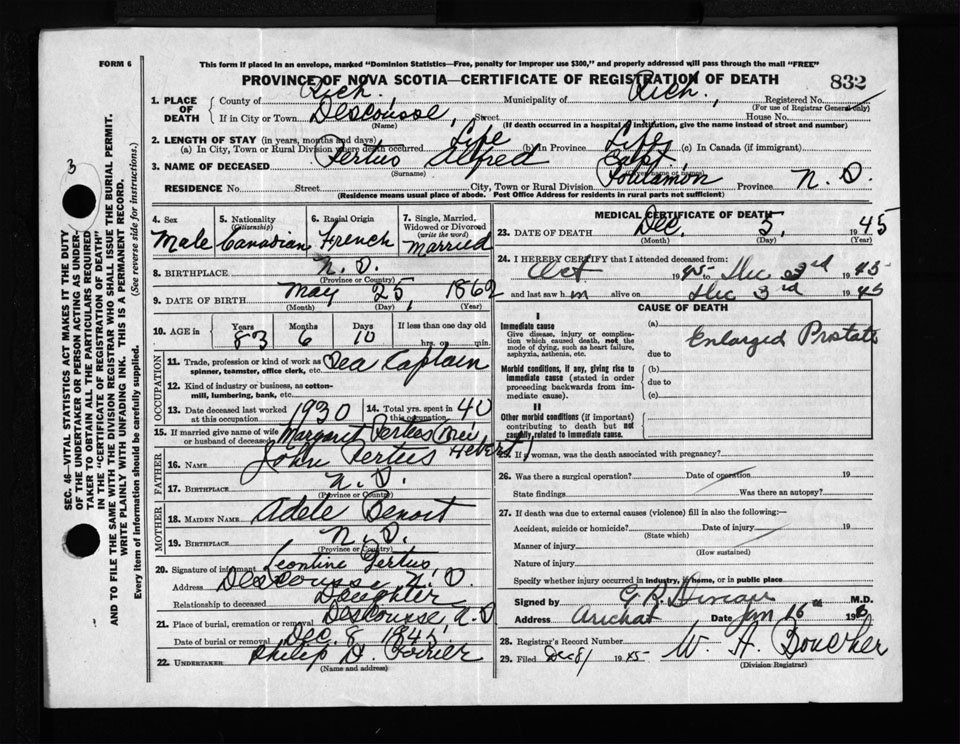 FORM 6
This form if placed in an envelope, marked "Dominion Statistics—Free, penalty for improper use $300," and properly addressed will pass through the mail "FREE"
PROVINCE OF NOVA SCOTIA—CERTIFICATE OF REGISTRATION OF DEATH 832
1. PLACE OF DEATH { County of Rich. Municipality of Rich. Registered No.
(For use of Registrar General only)
If in City or Town Descousse, Street House No.
(Name) (If death occurred in a hospital or institution, give the name instead of street and number)
2. LENGTH OF STAY (in years, months and days)
(a) In City, Town or Rural Division where death occurred Life (b) in Province Life (c) In Canada (if immigrant)
3. NAME OF DECEASED Pertus Alfred Capt
(Surname)
RESIDENCE No. Street City, Town or Rural Division Poulamon Province N. S.
(Residence means usual place of abode. Post Office Address for residents in rural parts not sufficient)
4. Sex Male
5. Nationality (Citizenship) Canadian
6. Racial Origin French
7. Single, Married, Widowed or Divorced (write the word) Married
8. BIRTHPLACE N. S.
(Province or Country)
9. DATE OF BIRTH May 25, 1862
(Month) (Day) (Year)
10. AGE in Years Months Days If less than one day old
83 6 10 hrs. or min.
OCCUPATION
11. Trade, profession or kind of work as spinner, teamster, office clerk, etc. Sea Captain
12. Kind of industry or business, as cotton-mill, lumbering, bank, etc.
13. Date deceased last worked at this occupation 1930
14. Total yrs. spent in this occupation 40
15. If married give name of wife or husband of deceased Margaret Pertus (nee Hebert)
FATHER
16. NAME John Pertus
17. BIRTHPLACE N. S.
(Province or Country)
MOTHER
18. MAIDEN NAME Adele Benoit
19. BIRTHPLACE N. S.
(Province or Country)
20. Signature of informant Leontine Pertus
Address Descousse N. S.
Relationship to deceased Daughter
21. Place of burial, cremation or removal Descousse N. S
Date of burial or removal Dec. 8 1945
22. UNDERTAKER Philip D. Poirier
(Name and address)
MEDICAL CERTIFICATE OF DEATH
23. DATE OF DEATH Dec. 5, 1945
(Month) (Day) (Year)
24. I HEREBY CERTIFY that I attended deceased from:
Oct 1945 to Dec 3rd 1945
and last saw h im alive on Dec 3rd 1945
CAUSE OF DEATH
I
Immediate cause (a) Enlarged Prostate
Give disease, injury or complication which caused death, not the mode of dying, such as heart failure, asphyxia, asthenia, etc.
due to
Morbid conditions, if any, giving rise to immediate cause (stated in order proceeding backwards from immediate cause).
(b)
due to
(c)
II
Other morbid conditions (if important) contributing to death but not causally related to immediate cause.
25. If a woman, was the death associated with pregnancy?
26. Was there a surgical operation? Date of operation 19
State findings Was there an autopsy?
27. If death was due to external causes (violence) fill in also the following:—
Accident, suicide or homicide? Date of injury 19
(State which)
Manner of injury
(How sustained)
Nature of injury
Specify whether injury occurred in industry, in home, or in public place
Signed by M.D.
Address Arichat Date Jan 16th
28. Registrar's Record Number
29. Filed Dec 8/ 1945 W. A. Boucher
(Division Registrar)
3
SEC. 46—VITAL STATISTICS ACT MAKES IT THE DUTY
OF THE UNDERTAKER OR PERSON ACTING AS UNDER-
TAKER TO OBTAIN ALL THE PARTICULARS REQUIRED
IN THE "CERTIFICATE OF REGISTRATION OF DEATH"
AND TO FILE THE SAME WITH THE DIVISION REGISTRAR WHO SHALL ISSUE THE BURIAL PERMIT.
WRITE PLAINLY WITH UNFADING INK. THIS IS A PERMANENT RECORD.
Every item of information should be carefully supplied. (See reverse side for instructions.)